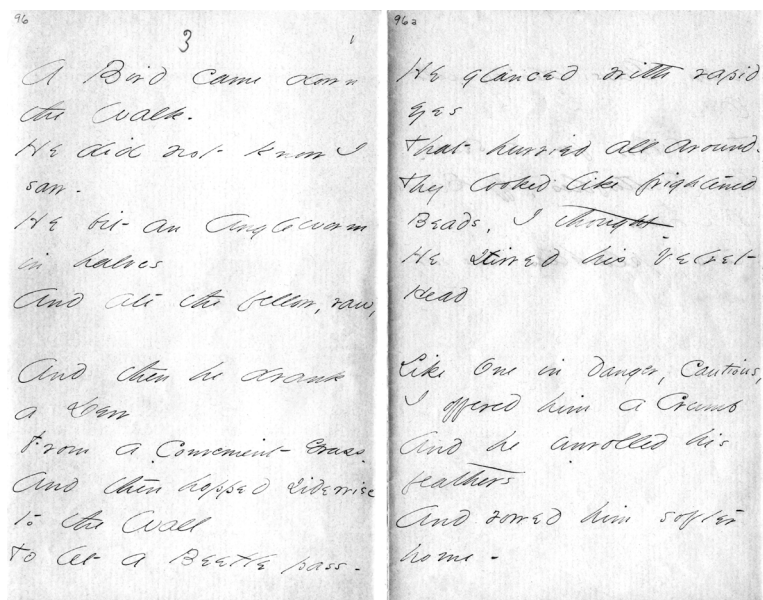 96
3
1
A Bird came down
the Walk.
He did not know I
saw.
He bit an Angleworm
in halves
And ate the fellow, raw,
And then he drank
a Dew
From a Convenient Grass.
And then hopped sidewise
to the Wall
To let a Beetle pass.
96a
He glanced with rapid
eyes
That hurried all around.
They looked like frightened
Beads, I thought
He stirred his Velvet
Head
Like One in danger, Cautious,
I offered him a Crumb
And he unrolled his
feathers
And rowed him softer
home -